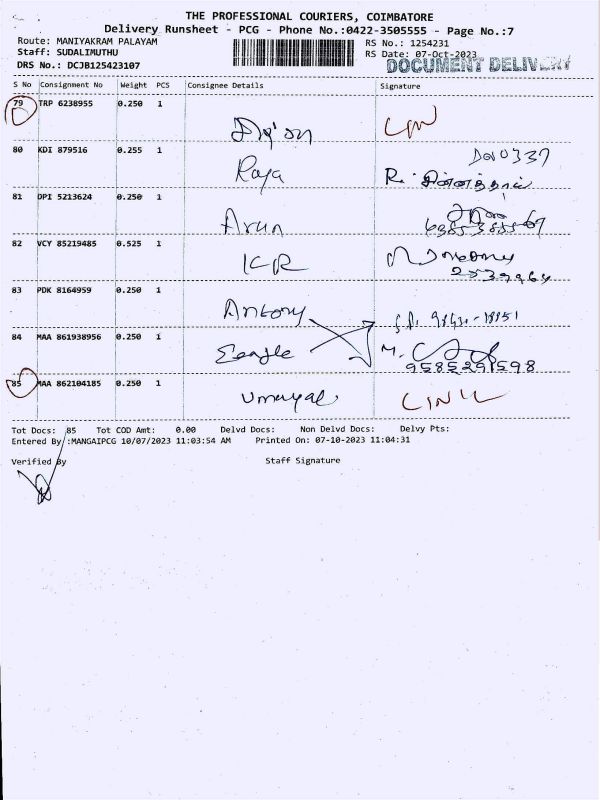 THE PROFESSIONAL COURIERS, COIMBATORE
Delivery Runsheet - PCG - Phone No.:0422-3505555 - Page No.:7
Route: MANIYAKRAM PALAYAM
RS No.: 1254231
Staff: SUDALIMUTHU
RS Date: 07-Oct-2023
DRS No.: DCJB125423107
DOCUMENT DELIVERY
S No Consignment No Weight PCS Consignee Details Signature
79 TRP 6238955 0.250 1
80 KDI 879516 0.255 1
Raja R.
81 DPI 5213624 0.250 1
Arun
82 VCY 85219485 0.525 1
KR
83 PDK 8164959 0.250 1
Antony
84 MAA 861938956 0.250 1
Eeagle M.
9585291598
85 MAA 862104185 0.250 1
Umayal
Tot Docs: 85 Tot COD Amt: 0.00 Delvd Docs: Non Delvd Docs: Delvy Pts:
Entered By :MANGAIPCG 10/07/2023 11:03:54 AM Printed On: 07-10-2023 11:04:31
Verified By Staff Signature